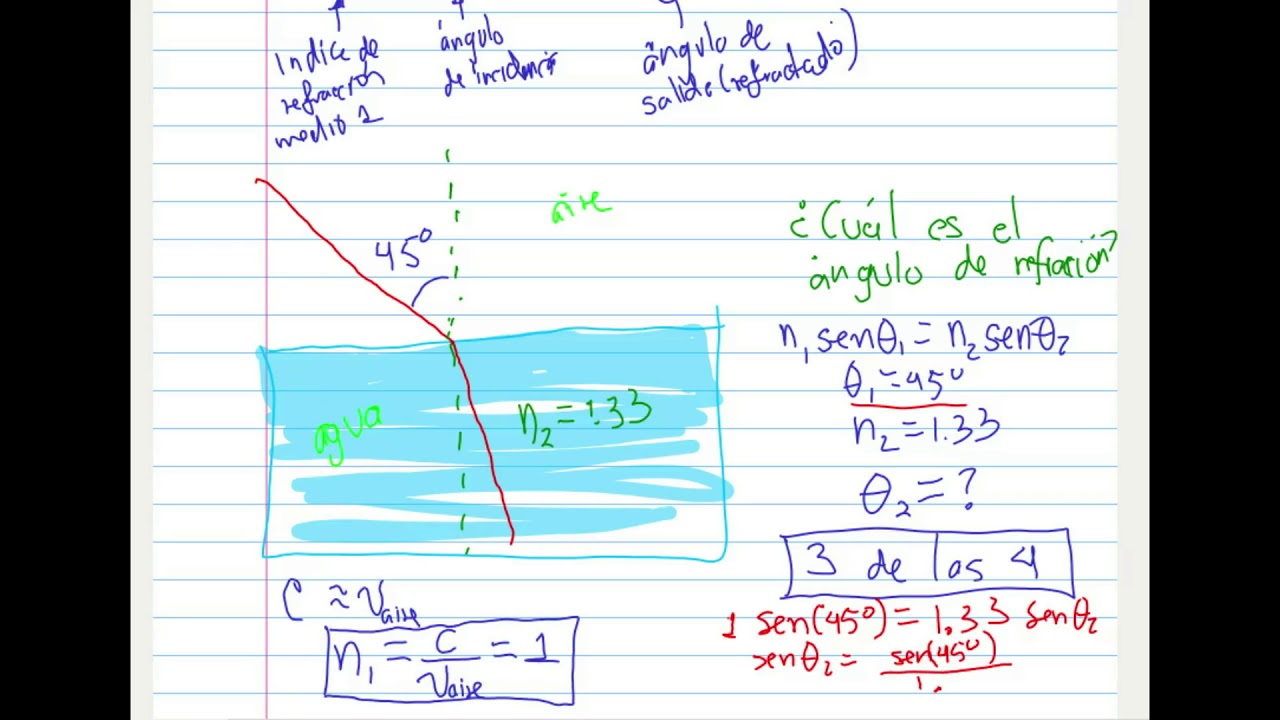 Indice de
refracción
medio 1
ángulo
de incidencia
ángulo de
salida (refractado)
aire
45°
agua
n₂ = 1.33
¿Cuál es el
ángulo de refracción?
n₁ senθ₁ = n₂ senθ₂
θ₁ = 45°
n₂ = 1.33
θ₂ = ?
3 de las 4
1 sen(45°) = 1.33 senθ₂
senθ₂ = sen(45°)
1.
C ≈ Vaire
n₁ = C / Vaire = 1